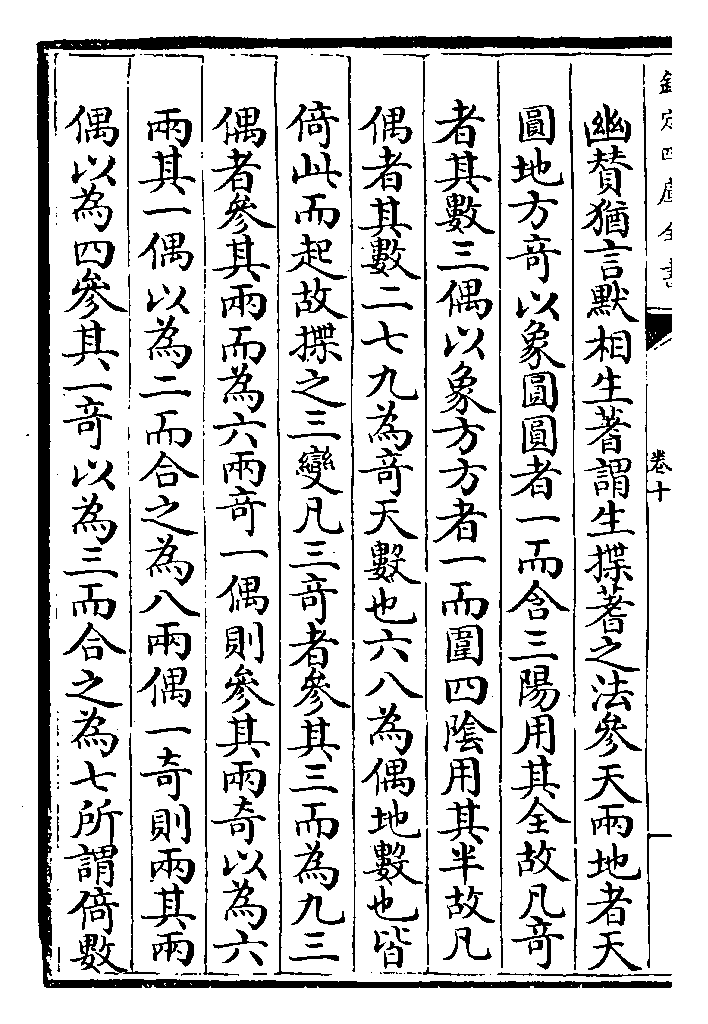 欽定四庫全書
卷十
幽賛猶言黙相生蓍謂生揲蓍之法參天兩地者天
圓地方竒以象圓圓者一而含三陽用其全故凡竒
者其數三偶以象方方者一而圍四陰用其半故凡
偶者其數二七九為竒天數也六八為偶地數也皆
倚此而起故揲之三變凡三竒者參其三而為九三
偶者參其兩而為六兩竒一偶則參其兩奇以為六
兩其一偶以為二而合之為八兩偶一奇則兩其兩
偶以為四參其一竒以為三而合之為七所謂倚數